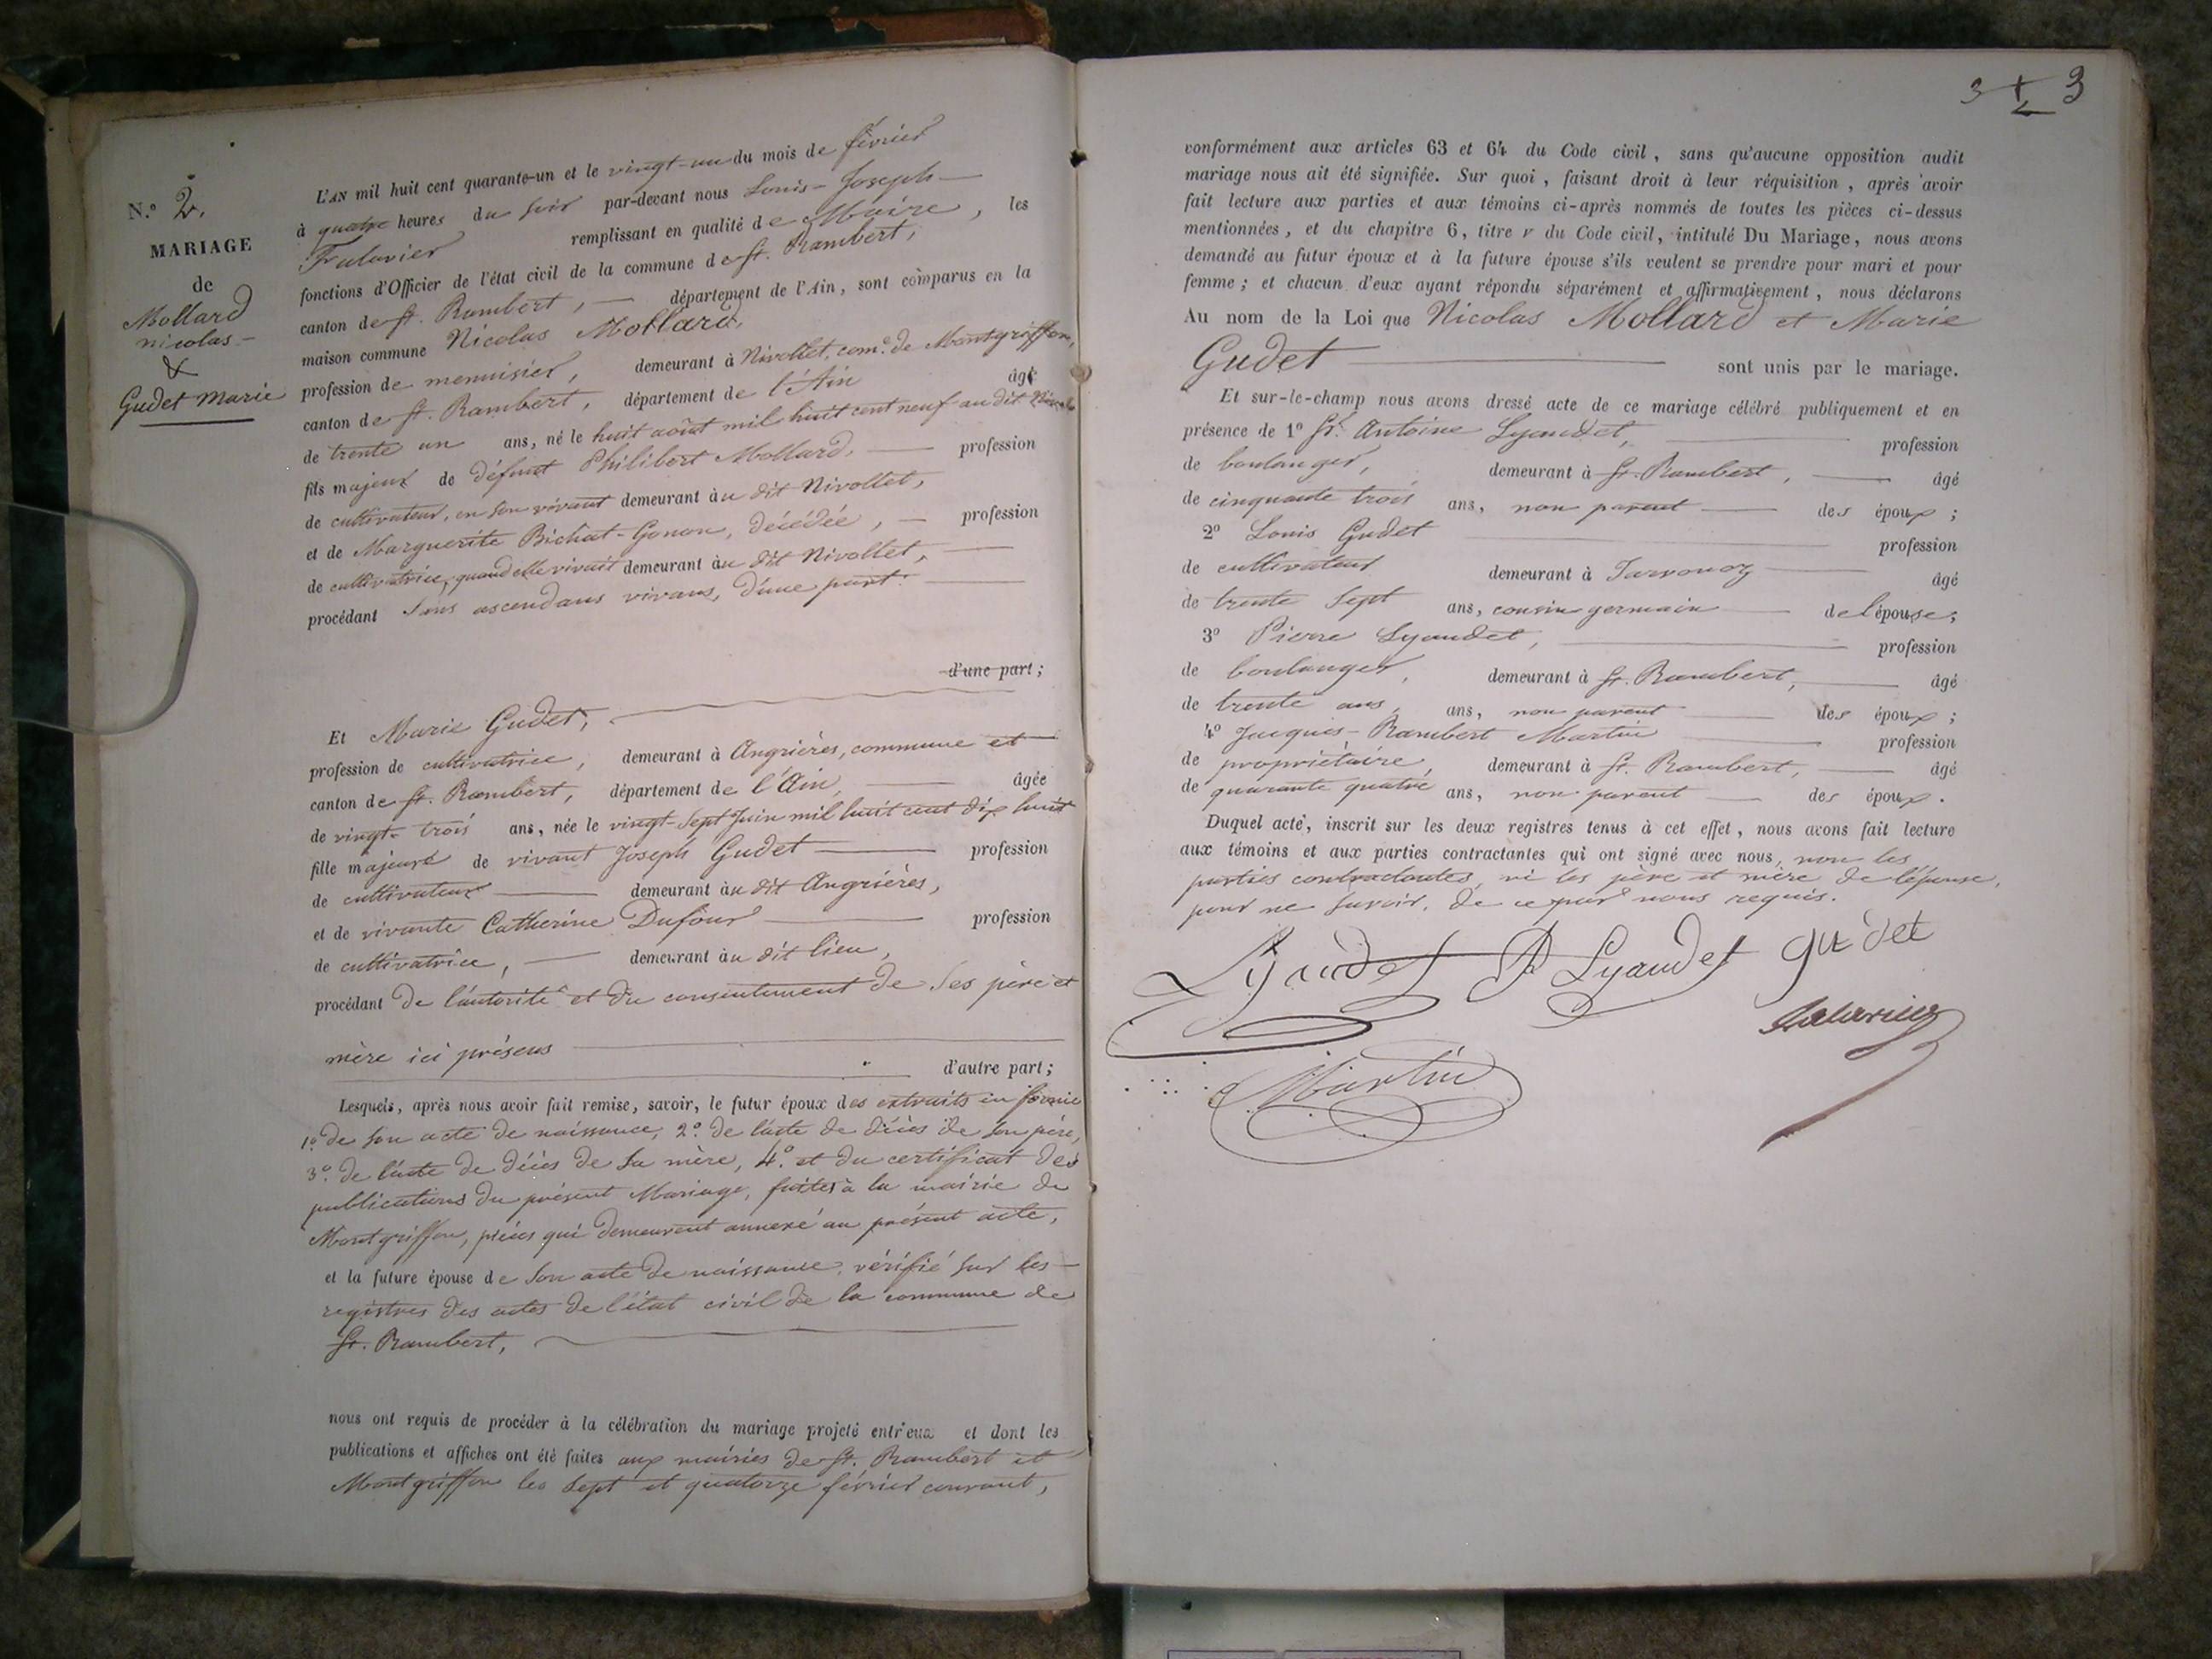 N.º 2.
MARIAGE
de
Mollard
nicolas -
&
Gudet Marie
L'AN mil huit cent quarante-un et le vingt-un du mois de février
à quatre heures du soir par-devant nous Louis-Joseph
Falavier remplissant en qualité de Maire, les
fonctions d'Officier de l'état civil de la commune de St. Rambert,
canton de St. Rambert, département de l'Ain, sont comparus en la
maison commune Nicolas Mollard,
profession de menuisier, demeurant à Nivollet, com.e de Montgriffon,
canton de St. Rambert, département de l'Ain âgé
de trente un ans, né le huit août mil huit cent neuf au dit
fils majeur de défunt Philibert Mollard, profession
de cultivateur, en son vivant demeurant au dit Nivollet,
et de Marguerite Bichat-Gonon, décédée, profession
de cultivatrice, quand elle vivait demeurant au dit Nivollet,
procédant sans ascendans vivans, d'une part.
d'une part;
Et Marie Gudet,
profession de cultivatrice, demeurant à Angrières, commune et
canton de St. Rambert, département de l'Ain, âgée
de vingt-trois ans, née le vingt-sept Juin mil huit cent dix huit
fille majeure de vivant Joseph Gudet profession
de cultivateur demeurant au dit Angrières,
et de vivante Catherine Dufour profession
de cultivatrice, demeurant au dit lieu,
procédant de l'autorité et du consentement de ses père et
mère ici présens
d'autre part;
Lesquels, après nous avoir fait remise, savoir, le futur époux des extraits en forme
1.º de son acte de naissance, 2.º de l'acte de décès de son père,
3.º de l'acte de décès de sa mère, 4.º et du certificat des
publications du présent Mariage, faites à la mairie de
Montgriffon, pièces qui demeurent annexé au présent acte,
et la future épouse de son acte de naissance, vérifié sur les
registres des actes de l'état civil de la commune de
St. Rambert,
nous ont requis de procéder à la célébration du mariage projeté entr'eux et dont les
publications et affiches ont été faites aux mairies de St. Rambert et
Montgriffon les sept et quatorze février courant,
3 3
conformément aux articles 63 et 64 du Code civil, sans qu'aucune opposition audit
mariage nous ait été signifiée. Sur quoi, faisant droit à leur réquisition, après avoir
fait lecture aux parties et aux témoins ci-après nommés de toutes les pièces ci-dessus
mentionnées, et du chapitre 6, titre v du Code civil, intitulé Du Mariage, nous avons
demandé au futur époux et à la future épouse s'ils veulent se prendre pour mari et pour
femme; et chacun d'eux ayant répondu séparément et affirmativement, nous déclarons
Au nom de la Loi que Nicolas Mollard et Marie
Gudet sont unis par le mariage.
Et sur-le-champ nous avons dressé acte de ce mariage célébré publiquement et en
présence de 1º Sr. Antoine Lyaudet, profession
de boulanger, demeurant à St. Rambert, âgé
de cinquante trois ans, non parent des époux;
2º Louis Gudet profession
de cultivateur demeurant à Javornoz âgé
de trente sept ans, cousin germain de l'épouse;
3º Pierre Lyaudet, profession
de boulanger, demeurant à St. Rambert, âgé
de trente ans, ans, non parent des époux;
4º Jacques-Rambert Martin profession
de propriétaire, demeurant à St. Rambert, âgé
de quarante quatre ans, non parent des époux.
Duquel acte, inscrit sur les deux registres tenus à cet effet, nous avons fait lecture
aux témoins et aux parties contractantes qui ont signé avec nous, non les
parties contractantes, ni les père et mère de l'épouse,
pour ne savoir, de ce par nous requis.
Lyaudet P Lyaudet gudet
Falavier
Martin